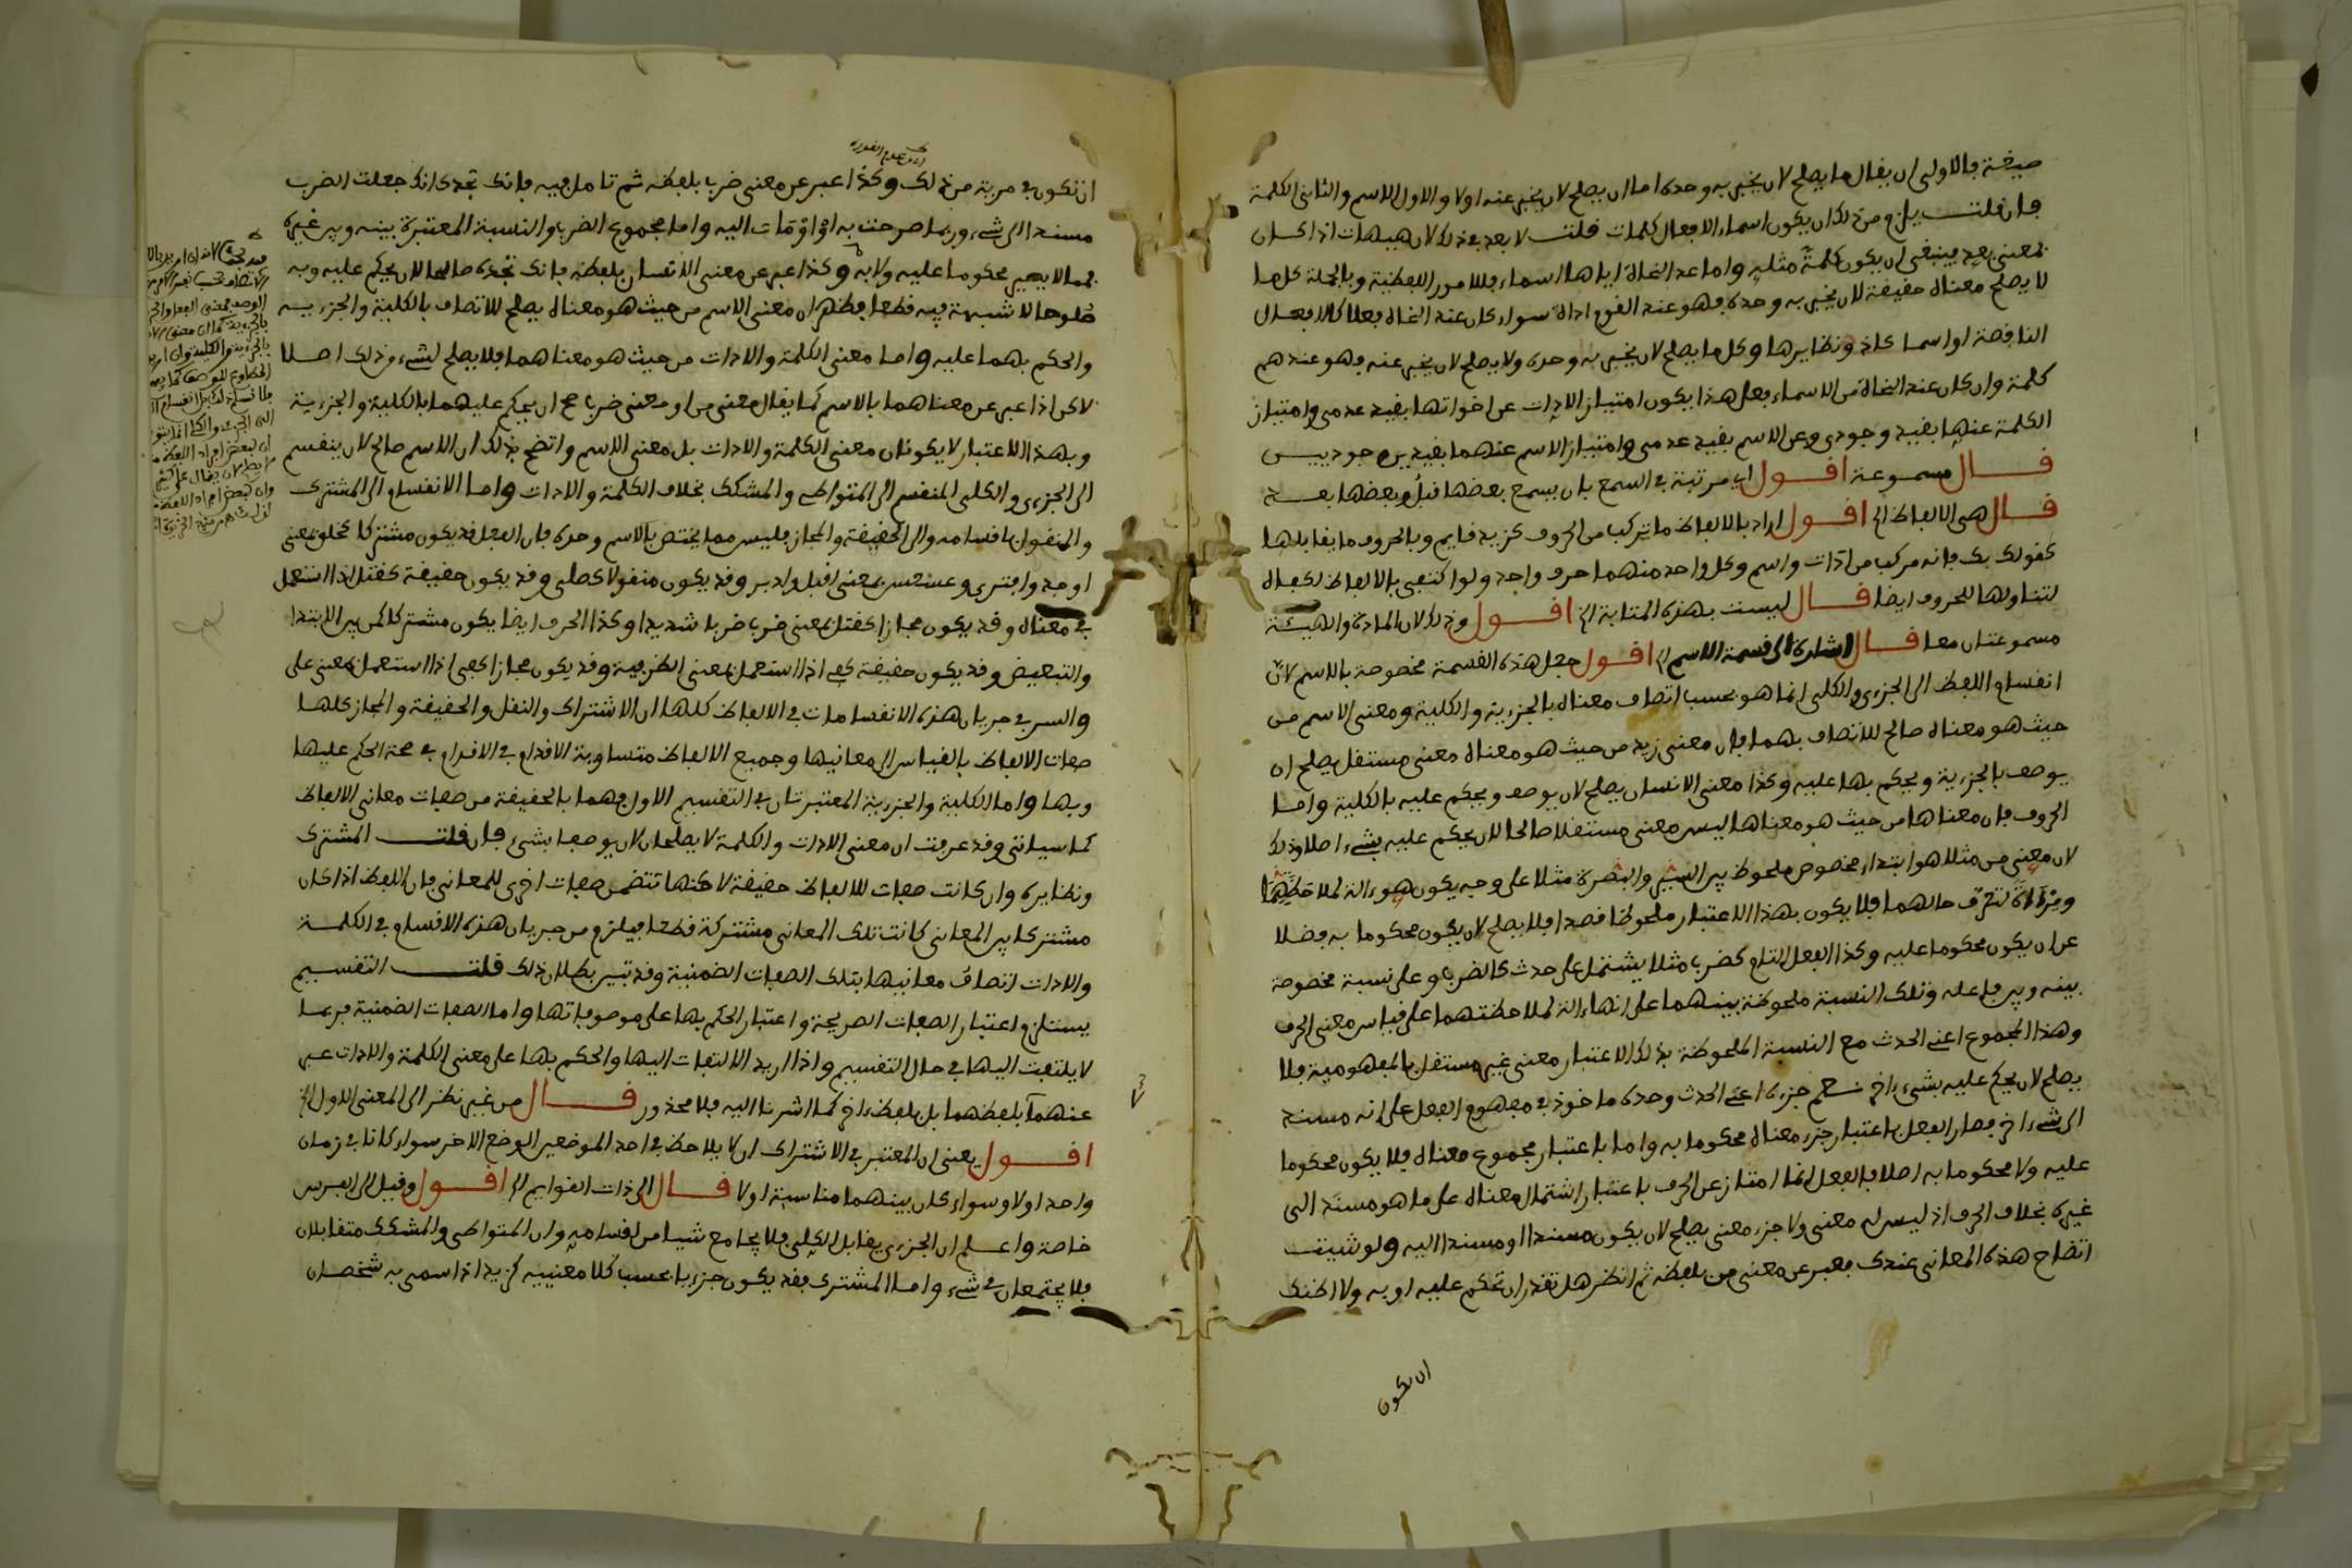 صيغة فالاولى ان يقال ما يصلح لان يخبر به وحده اما ان يصلح لان يخبر عنه اولا والاول الاسم والثانى الكلمة
فان قلت يلزم من ذلك ان يكون اسماء الافعال كلمات قلت لا بعد في ذلك لان هيهات اذا كان
بمعنى بعد فينبغى ان يكون كلمة مثله واما عد النحاة اياها اسماء فللامور اللفظية وبالجملة كل ما
لا يصلح معناه حقيقة لان يخبر به وحده فهو عند القوم اداة سواء كان عند النحاة فعلا كالافعال
الناقصة او اسما كاذ ونظايرها وكل ما يصلح لان يخبر به وحده ولا يصلح لان يخبر عنه فهو عندهم
كلمة وان كان عند النحاة من الاسماء فعلى هذا يكون امتياز الادات عن اخواتها بقيد عدمى وامتياز
الكلمة عنها بقيد وجودى وعن الاسم بقيد عدمى وامتياز الاسم عنهما بقيدين وجوديين
قال مسموعة اقول اى مرتبة في السمع بان يسمع بعضها قبل وبعضها بعد
قال هى الالفاظ الخ اقول اراد بالالفاظ ما يتركب من الحروف كزيد قايم وبالحروف ما يقابلها
كقولك بك فانه مركب من ادات واسم وكل واحد منهما حرف واحد ولو اكتفى بالالفاظ لكفاه
لتناولها للحروف ايضا قال ليست بهذه المثابة الخ اقول وذلك لان المادة والهيئة
مسموعتان معا قال اشارة الى قسمة الاسم الخ اقول جعل هذه القسمة مخصوصة بالاسم لان
انقسام اللفظ الى الجزءى والكلى انما هو بحسب اتصاف معناه بالجزءية والكلية ومعنى الاسم من
حيث هو معناه صالح للاتصاف بهما فان معنى زيد من حيث هو معناه معنى مستقل يصلح ان
يوصف بالجزءية ويحكم بها عليه وكذا معنى الانسان يصلح لان يوصف ويحكم عليه بالكلية واما
الحروف فان معناها من حيث هو معناها ليس معنى مستقلا صالحا لان يحكم عليه بشىء اصلا وذلك
لان معنى من مثلا هو ابتداء مخصوص ملحوظ بين السير والبصرة مثلا على وجه يكون هو ءالة لملاحظتهما
ومرءاة لتعرف حالهما فلا يكون بهذا الاعتبار ملحوظا قصدا فلا يصلح لان يكون محكوما به فضلا
عن ان يكون محكوما عليه وكذا الفعل التام كضرب مثلا يشتمل على حدث كالضرب وعلى نسبة مخصوصة
بينه وبين فاعله وتلك النسبة ملحوظة بينهما على انها ءالة لملاحظتهما على قياس معنى الحرف
وهذا المجموع اعنى الحدث مع النسبة الملحوظة بذلك الاعتبار معنى غير مستقل بالمفهومية فلا
يصلح لان يحكم عليه بشىء اخر نعم جزءه اعنى الحدث وحده ماخوذ في مفهوم الفعل على انه مسند
الى شىء اخر فصار الفعل باعتبار جزء معناه محكوما به واما باعتبار مجموع معناه فلا يكون محكوما
عليه ولا محكوما به اصلا فالفعل انما امتاز عن الحرف باعتبار اشتمال معناه على ما هو مسند الى
غيره بخلاف الحرف اذ ليس له معنى ولا جزء معنى يصلح لان يكون مسندا او مسندا اليه ولو شيت
اتضاح هذه المعانى عندك فعبر عن معنى من بلفظه ثم انظر هل تقدر ان تحكم عليه او به ولا اظنك
ان تكون
ان تكون في مرية من ذلك وكذا عبر عن معنى ضرب بلفظه ثم تامل فيه فانك تجدى انك جعلت الضرب
مسندا الى شىء وربما صرحت به او اومات اليه واما مجموع الضرب والنسبة المعتبرة بينه وبين غيره
فمما لا يصير محكوما عليه ولا به وكذا عبر عن معنى الانسان بلفظه فانك تجده صالحا لان يحكم عليه وبه
صلوحا لا شبهة فيه قطعا فظهر ان معنى الاسم من حيث هو معناه يصلح للاتصاف بالكلية والجزءية
والحكم بهما عليه واما معنى الكلمة والادات من حيث هو معناهما فلا يصلح لشىء من ذلك اصلا
لاكن اذا عبر عن معناهما بالاسم كما يقال معنى من او معنى ضرب صح ان يحكم عليهما بالكلية والجزءية
وبهذا الاعتبار لا يكونان معنى الكلمة والادات بل معنى الاسم واتضح بذلك ان الاسم صالح لان ينقسم
الى الجزءى والكلى المنقسم الى المتواطى والمشكك بخلاف الكلمة والادات واما الانقسام الى المشترك
والمنقول باقسامه والى الحقيقة والمجاز فليس مما يختص بالاسم وحده فان الفعل قد يكون مشتركا كخلق بمعنى
اوجد وافترى وعسعس بمعنى اقبل وادبر وقد يكون منقولا كصلى وقد يكون حقيقة كقتل اذا استعمل
في معناه وقد يكون مجازا كقتل بمعنى ضرب ضربا شديدا وكذا الحرف ايضا يكون مشتركا كمن بين الابتدا
والتبعيض وقد يكون حقيقة كفى اذا استعمل بمعنى الظرفية وقد يكون مجازا كفى اذا استعمل بمعنى على
والسر في جريان هذه الانقسامات في الالفاظ كلها ان الاشتراك والنقل والحقيقة والمجاز كلها
صفات الالفاظ بالقياس الى معانيها وجميع الالفاظ متساوية الاقدام في الاقدام في صحة الحكم عليها
وبها واما الكلية والجزءية المعتبرتان في التقسيم الاول فهما بالحقيقة من صفات معانى الالفاظ
كما سياتى وقد عرفت ان معنى الادات والكلمة لا يصلحان لان يوصفا بشىء فان قلت المشترك
ونظايره وان كانت صفات للالفاظ حقيقة لاكنها تتضمن صفات اخرى للمعانى فان اللفظ اذا كان
مشتركا بين المعانى كانت تلك المعانى مشتركة قطعا فيلزم من جريان هذه الاقسام في الكلمة
والادات اتصاف معانيها بتلك الصفات الضمنية وقد تبين بطلان ذلك قلت التقسيم
يستلزم اعتبار الصفات الصريحة واعتبار الحكم بها على موصوفاتها واما الصفات الضمنية فربما
لا يلتفت اليها في حال التقسيم واذا اريد الالتفات اليها والحكم بها على معنى الكلمة والادات عبر
عنهما لا بلفظهما بل بلفظ ءاخر كما اشرنا اليه فلا محذور قال من غير نظر الى المعنى الاول الخ
اقول يعنى ان المعتبر في الاشتراك ان لا يلاحظ في احد الموضعين الوضع الاخر سواء كانا في زمان
واحد اولا وسواء كان بينهما مناسبة اولا قال الى ذات القوايم الخ اقول وقيل الى الفرس
خاصة واعلم ان الجزءى يقابل الكلى فلا يجامع شيا من اقسامه وان المتواطى والمشكك متقابلان
فلا يجتمعان في شىء واما المشترك فقد يكون جزءيا بحسب كلا معنييه كزيد اذا سمى به شخصان